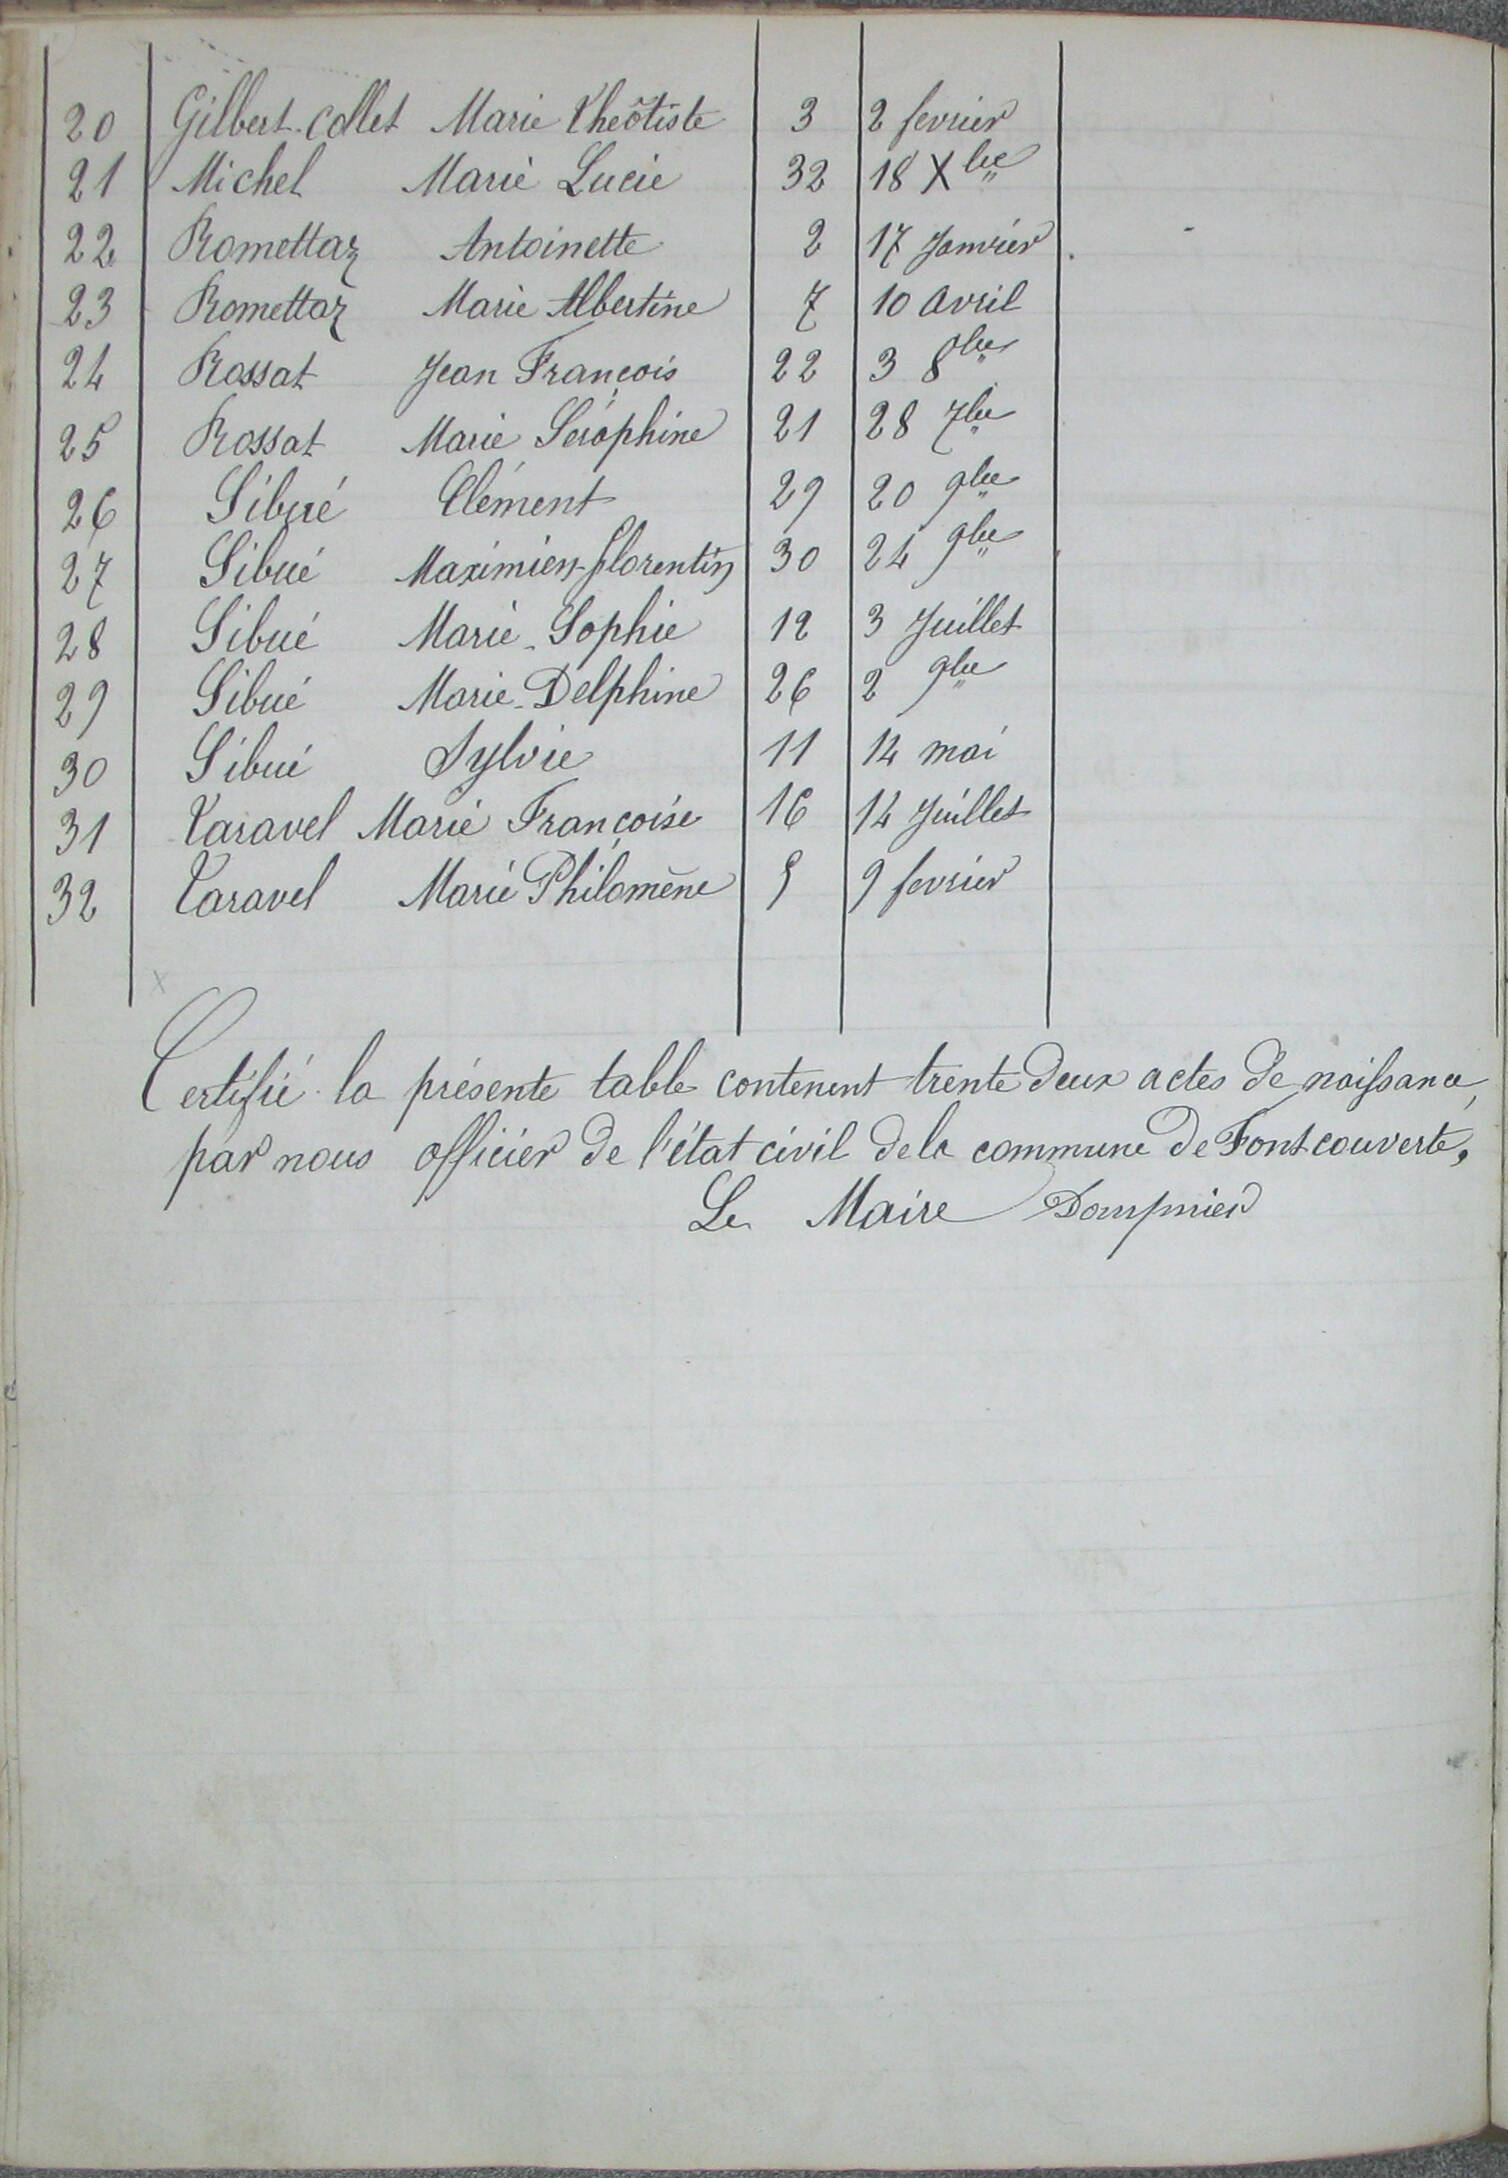 20 Gilbert-Collet Marie Théôtiste 3 2 fevrier
21 Michel Marie Lucie 32 18 Xbre
22 Romettaz Antoinette 2 17 Janvier
23 Romettaz Marie Albertine 7 10 Avril
24 Rossat Jean François 22 3 8bre
25 Rossat Marie Séraphine 21 28 7bre
26 Sibué Clément 29 20 9bre
27 Sibué Maximien-florentin 30 24 9bre
28 Sibué Marie-Sophie 12 3 Juillet
29 Sibué Marie-Delphine 26 2 9bre
30 Sibué Sylvie 11 14 mai
31 Taravel Marie Françoise 16 14 Juillet
32 Taravel Marie Philomène 5 9 fevrier
Certifié la présente table contenent trente deux actes de naissance,
par nous officier de l'état civil de la commune de Fontcouverte,
Le Maire Dompnier